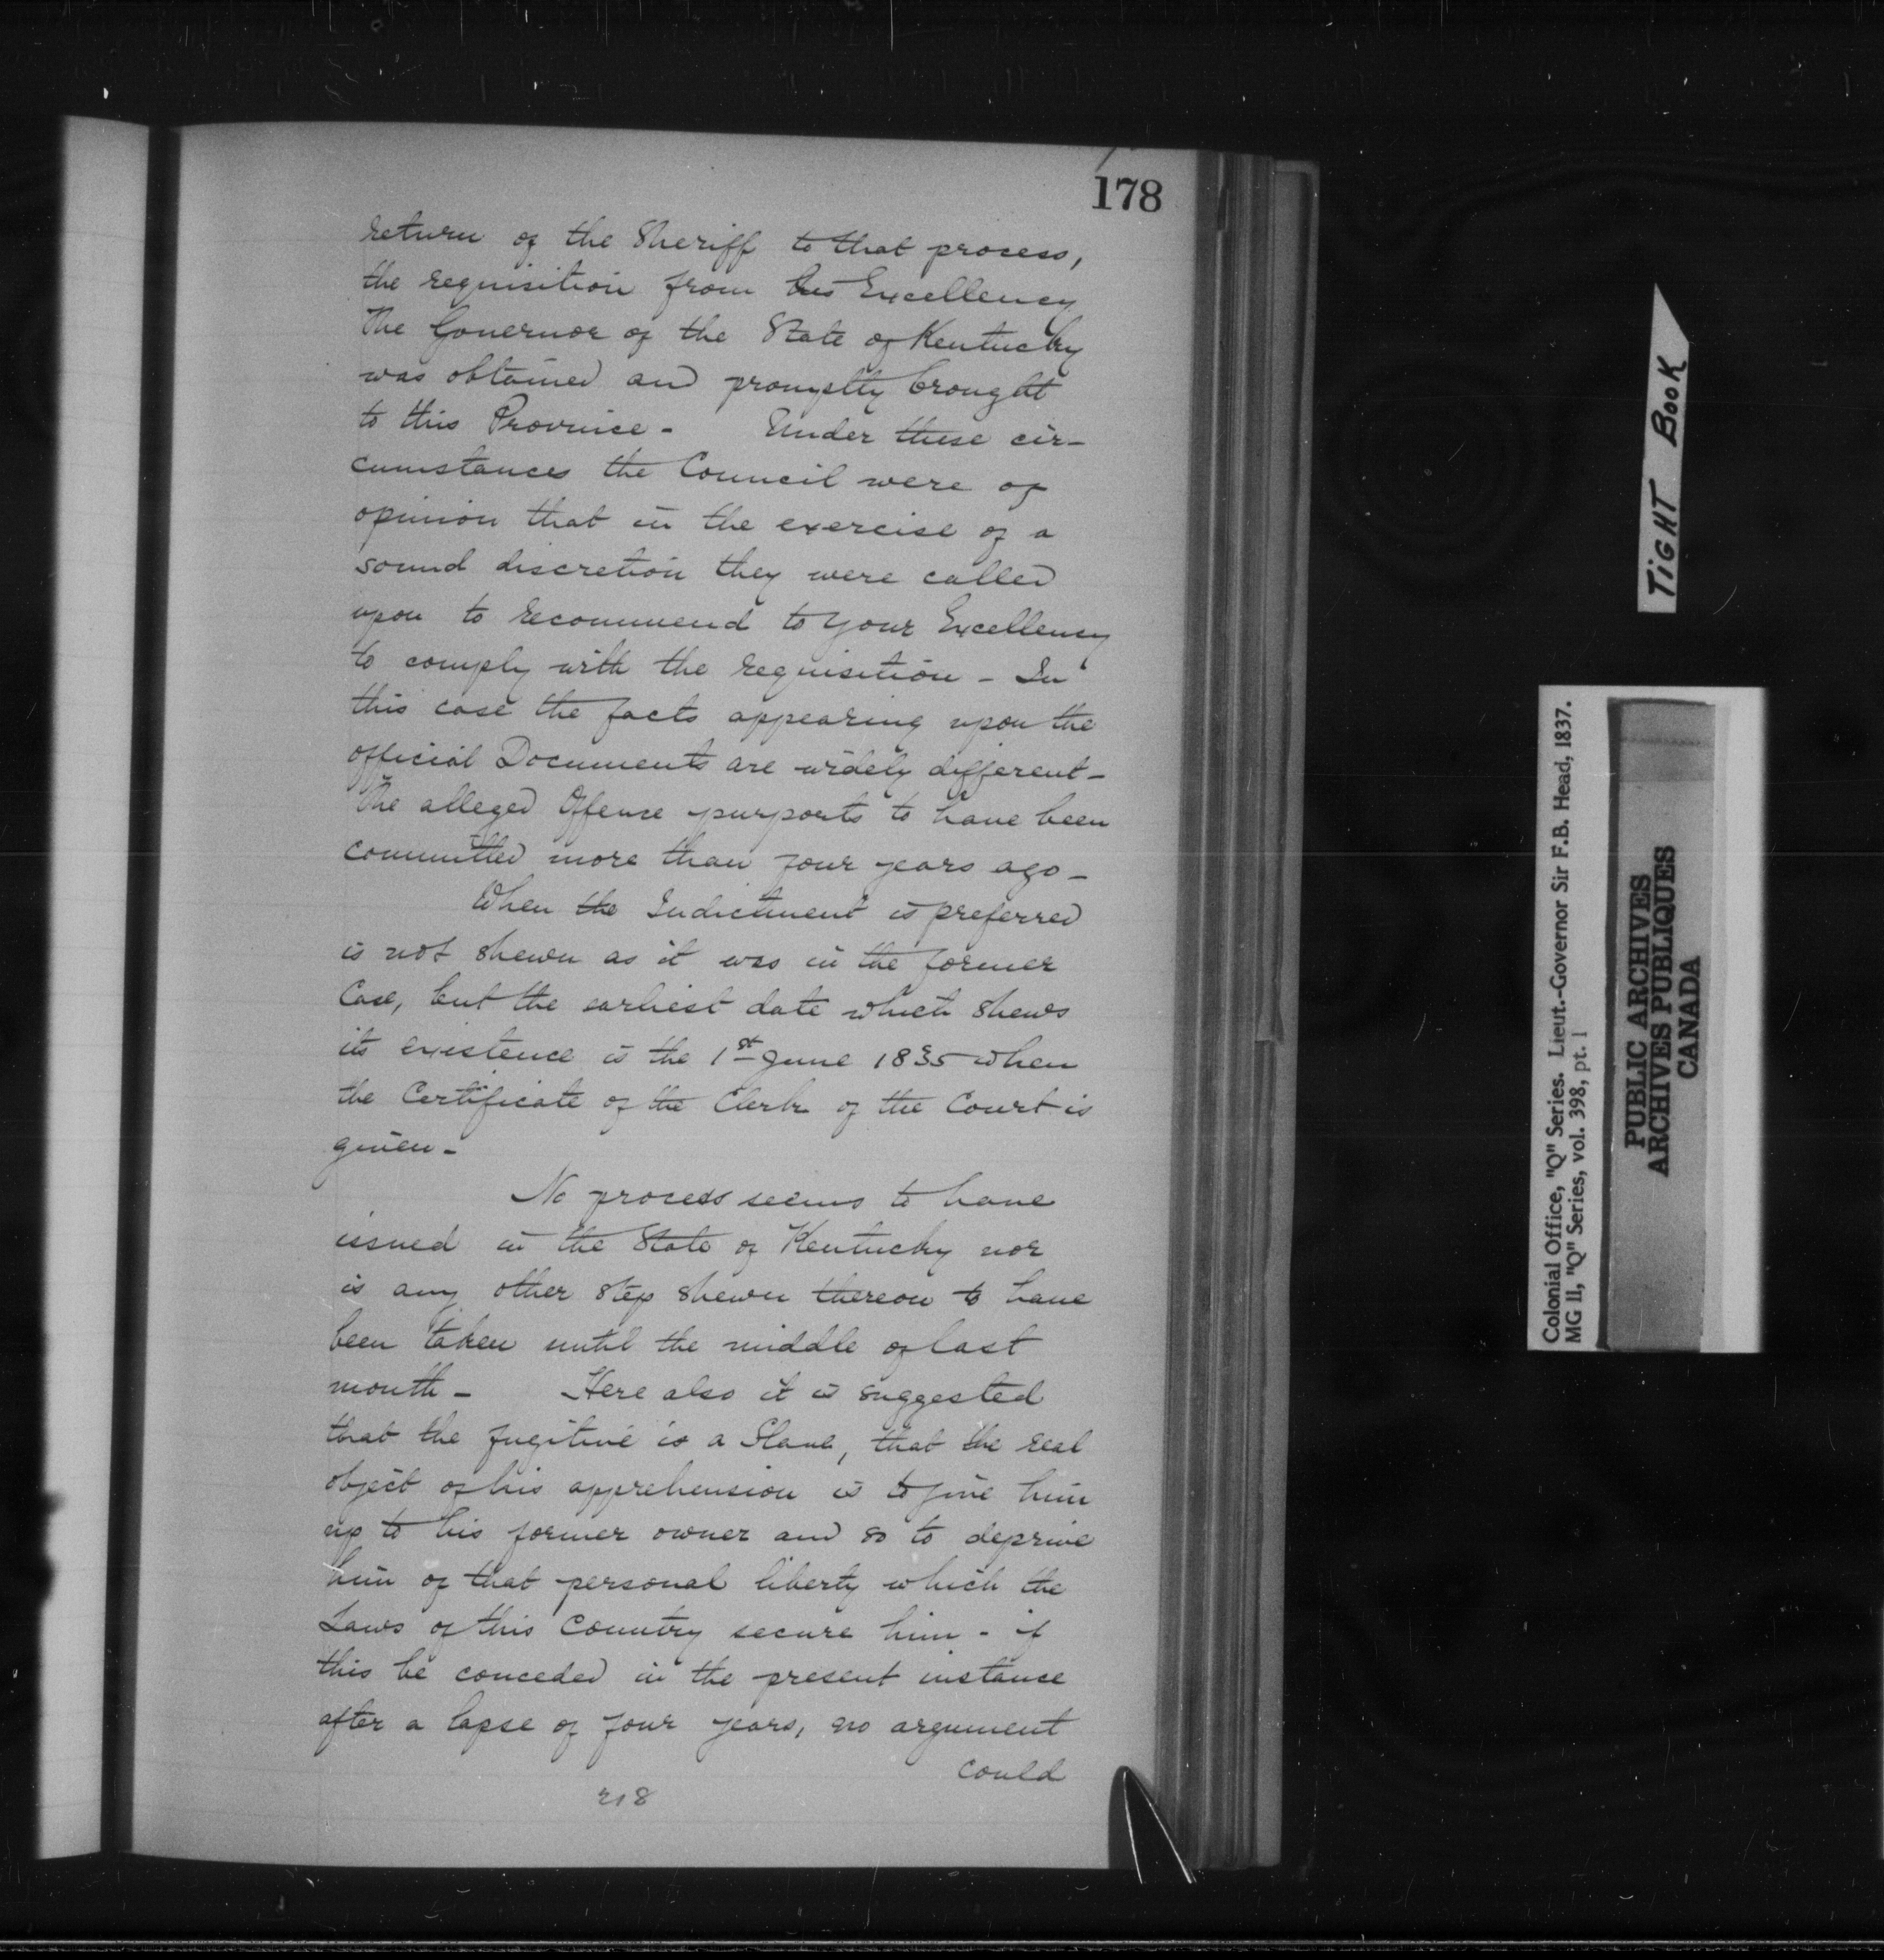 178
return of the Sheriff to that process,
the requisition from his Excellency
The Governor of the State of Kentucky
was obtained and promptly brought
to this Province - Under these cir-
cumstances the Council were of
opinion that in the exercise of a
sound discretion they were called
upon to recommend to your Excellency
to comply with the requisition - In
this case the facts appearing upon the
official Documents are widely different -
The alleged Offence purports to have been
committed more than four years ago -
When the Indictment is preferred
is not shewn as it was in the former
Case, but the earliest date which shews
its existence is the 1st June 1835 when
the Certificate of the Clerk of the Court is
given -
No process seems to have
issued in the State of Kentucky nor
is any other step shewn thereon to have
been taken until the middle of last
month - Here also it is suggested
that the fugitive is a Slave, that the real
object of his apprehension is to give him
up to his former owner and so to deprive
him of that personal liberty which the
Laws of this Country secure him - if
this be conceded in the present instance
after a lapse of four years, no argument
could
218
TIGHT BOOK
Colonial Office, "Q" Series. Lieut.-Governor Sir F.B. Head, 1837.
MG 11, "Q" Series, vol. 398, pt. 1
PUBLIC ARCHIVES
ARCHIVES PUBLIQUES
CANADA